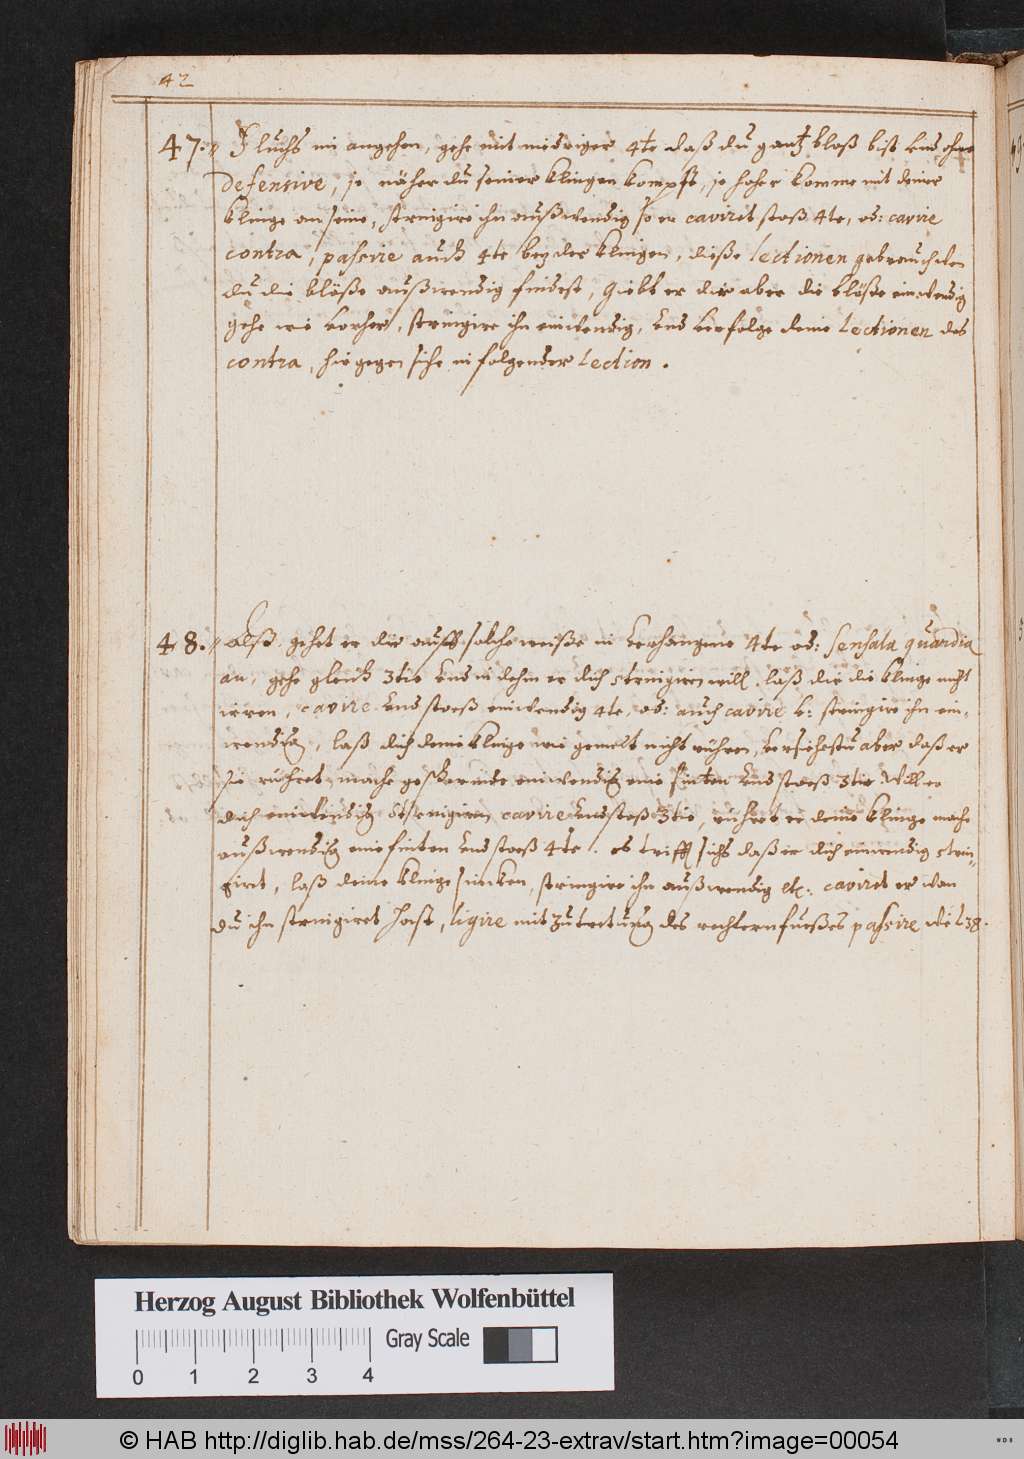 42
47. Fluchs im angehen, gehe mit nidriger 4te daß du gantz bloß bist und ohne
defensive, je näher du seiner klingen kompst, je hoher komme mit deiner
klinge an seine, stringire ihn außwendig so er cavirit stoß 4te, od: cavire
contra, passire auch 4te bey der klingen, dieße lectionen gebrauch wen
du die blöße außwendig findest, Giebt er dir aber die blöße einwendig
gehe wie vorher, stringire ihn einwendig, und verfolge deine lectionen des
contra, hirgegen siehe in folgender lection.
48. Alß gehet er dir auff solche weiße in verhangene 4te od: senfala guardia
an, gehe gleich 3tie und in dehm er dich stringiren will, laß dir die klinge nicht
irren, cavire und stoeß einwendig 4te, od: auch cavire v: stringire ihn ein-
wendig, laß dich deine klinge wie gemelt nicht rühren, versihestu aber daß er
sie rühret, mache geschwinde einwendig eine finten und stoeß 3tie Will er
dich einwendig stringiren cavire und stoß 3tie, rühret er deine klinge mache
außwendig eine finten und stoß 4te. es triff sichs daß er dich einwendig strin-
giret, laß deine klinge sincken, stringire ihn außwendig etc: caviret er wan
du ihn stringiret hast, ligire mit zutretung des rechtern fueßes passire vid L 38.
Herzog August Bibliothek Wolfenbüttel
Gray Scale
0 1 2 3 4
© HAB http://diglib.hab.de/mss/264-23-extrav/start.htm?image=00054